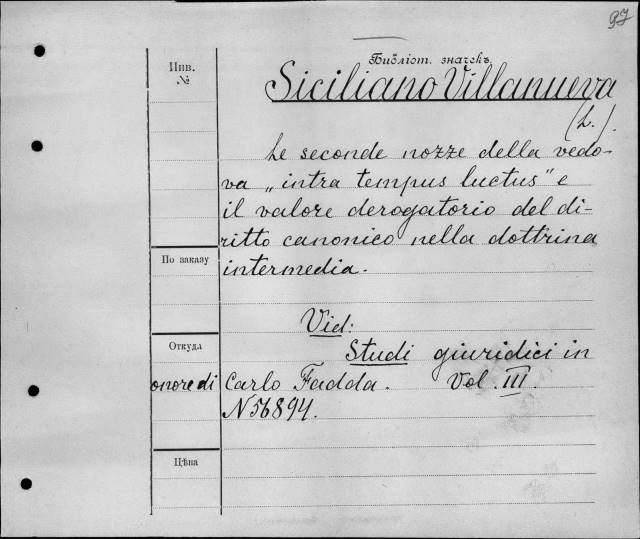 Библіот. значекъ
Инв.
№
Siciliano Villanueva
(L.).
Le seconde nozze della vedo-
va „intra tempus luctus" e
il valore derogatorio del di-
ritto canonico nella dottrina
По заказу
intermedia.
Vid:
Откуда
Studi giuridici in
onore di Carlo Fadda. Vol. III.
N 56894.
Цѣна